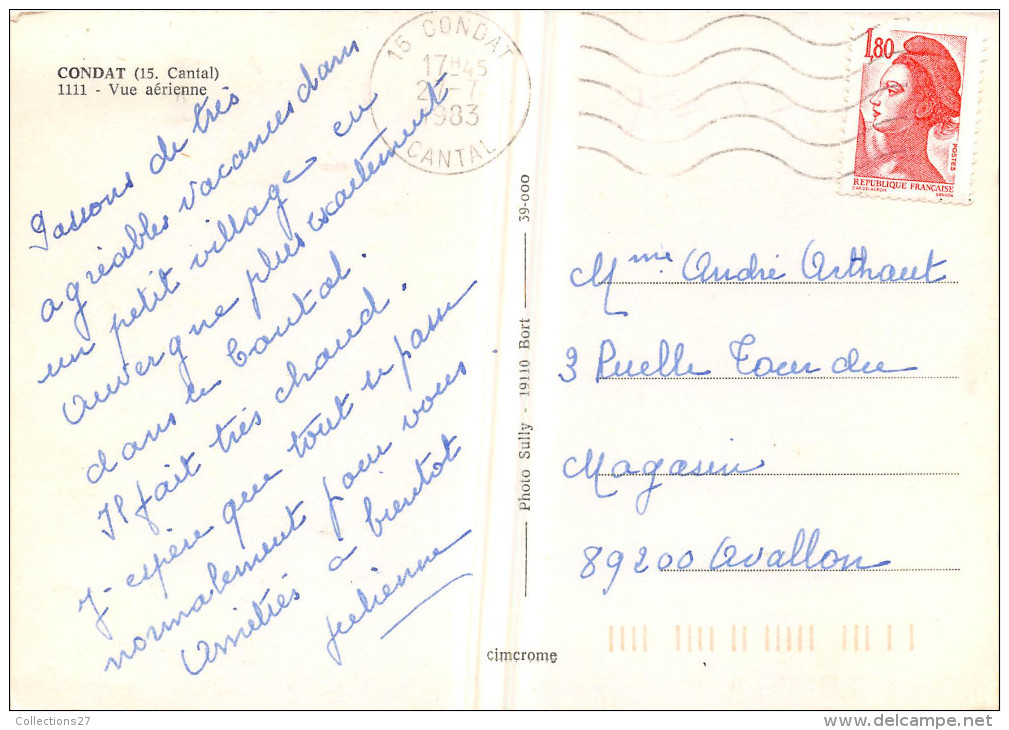 CONDAT (15. Cantal)
1111 - Vue aérienne
15 CONDAT
17H45
1983
CANTAL
1,80
POSTES
REPUBLIQUE FRANÇAISE
Passons de très
agréables vacances dans
un petit village en
Auvergne plus exactement
dans le Cantal.
Il fait très chaud.
J'espère que tout se passe
normalement pour vous
Amitiés à bientôt
Julienne
Photo Sully - 19110 Bort
39-000
cimcrome
Mme André Arthaut
3 Ruelle Tour du
Magasin
89200 Avallon
Collections27
delcampe.net